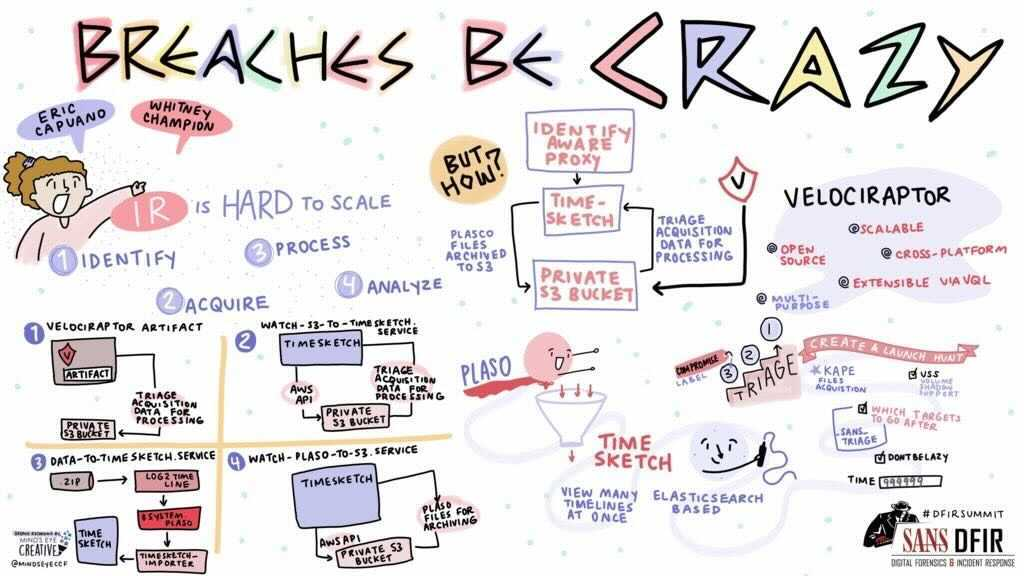 BREACHES BE CRAZY
ERIC
CAPUANO
WHITNEY
CHAMPION
IR IS HARD TO SCALE
1 IDENTIFY
2 ACQUIRE
3 PROCESS
4 ANALYZE
BUT
HOW?
IDENTIFY
AWARE
PROXY
TIME-
SKETCH
PRIVATE
S3 BUCKET
PLASCO
FILES
ARCHIVED
TO S3
TRIAGE
ACQUISITION
DATA FOR
PROCESSING
V
VELOCIRAPTOR
@ SCALABLE
@ OPEN
SOURCE
@ CROSS-PLATFORM
@ EXTENSIBLE VIA VQL
@ MULTI-
PURPOSE
1 VELOCIRAPTOR ARTIFACT
V
ARTIFACT
TRIAGE
ACQUISITION
DATA FOR
PROCESSING
PRIVATE
S3 BUCKET
2 WATCH-S3-TO-TIMESKETCH.
SERVICE
TIMESKETCH
AWS
API
TRIAGE
ACQUISITION
DATA FOR
PROCESSING
PRIVATE
S3 BUCKET
3 DATA-TO-TIMESKETCH.SERVICE
.ZIP
LOG2TIME
LINE
SYSTEM.
PLASO
TIMESKETCH-
IMPORTER
TIME
SKETCH
4 WATCH-PLASO-TO-S3.SERVICE
TIMESKETCH
PLASO
FILES FOR
ARCHIVING
AWS API
PRIVATE S3
BUCKET
PLASO
TIME
SKETCH
VIEW MANY
TIMELINES
AT ONCE
ELASTICSEARCH
BASED
1
2
3
COMPROMISE
LABEL
TRIAGE
CREATE A LAUNCH HUNT
KAPE
FILES
ACQUISTION
VSS
VOLUME
SHADOW
SUPPORT
WHICH TARGETS
TO GO AFTER
SANS-
TRIAGE
DONT BE LAZY
TIME 999999
GRAPHIC RECORDING BY:
MIND'S EYE
CREATIVE
@MINDSEYECCF
#DFIRSUMMIT
SANS DFIR
DIGITAL FORENSICS & INCIDENT RESPONSE